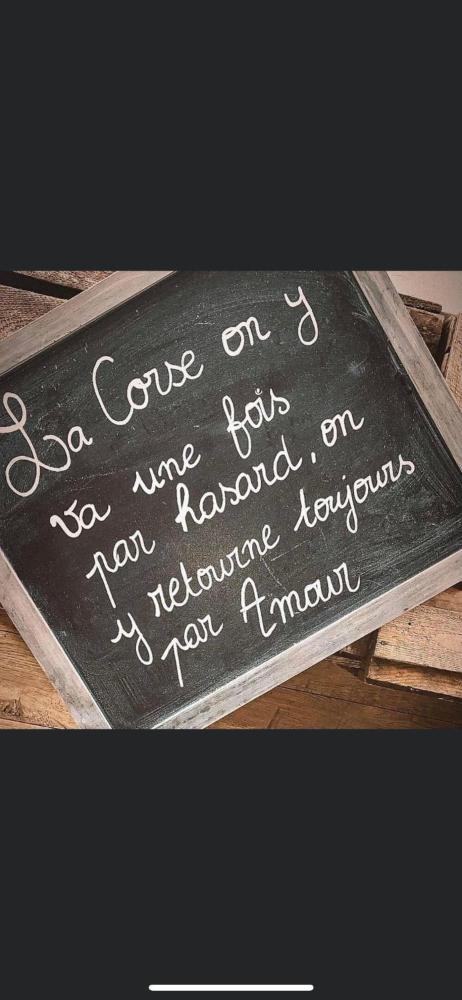 La Corse on y
va une fois
par hasard, on
y retourne toujours
par Amour